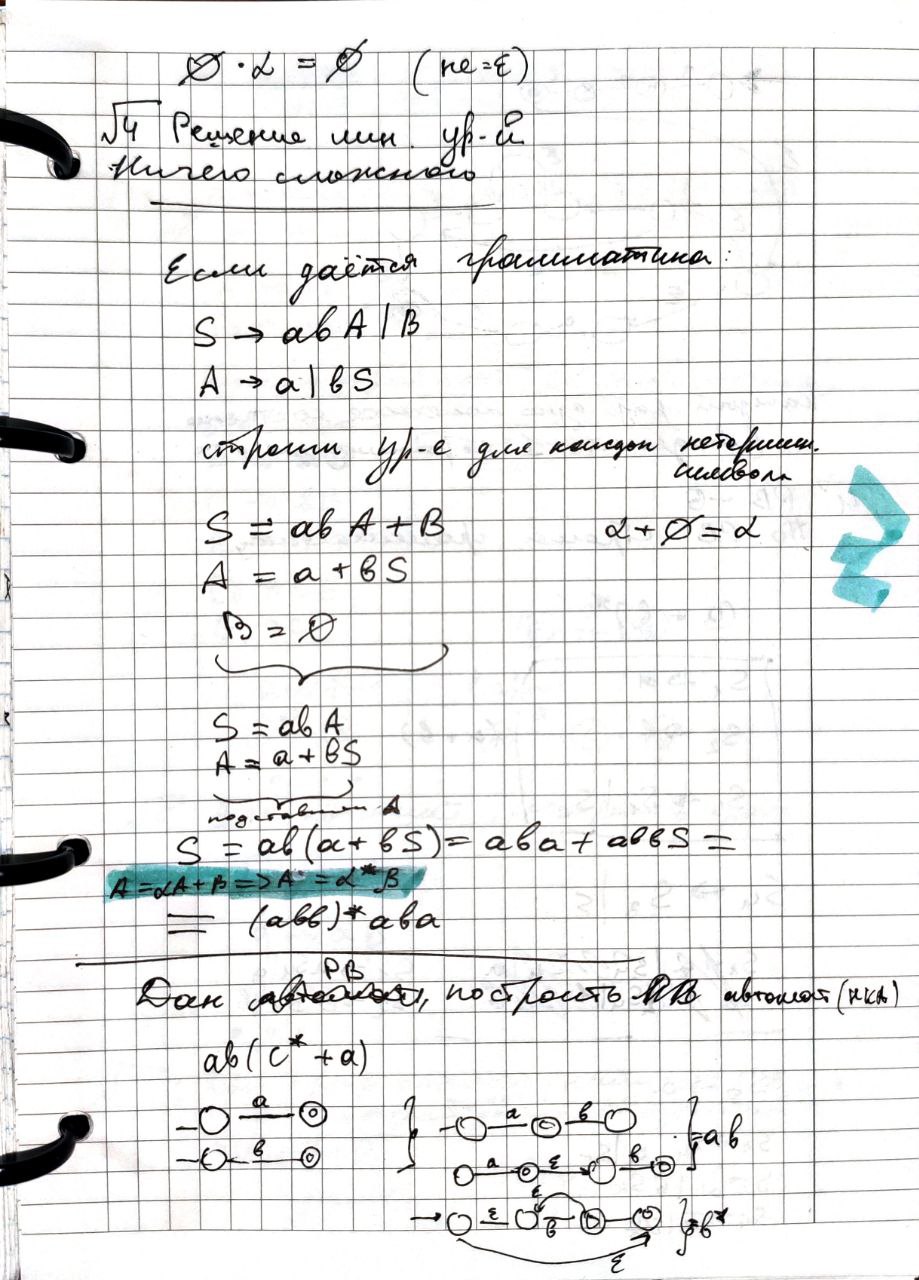 ∅ · α = ∅ (не = ε)
√4 Решение лин. ур-й
Ничего сложного
Если даётся грамматика:
S → abA | B
A → a | bS
строим ур-е для каждого нетермин.
символа
S = abA + B α + ∅ = α
A = a + bS
B = ∅
S = abA
A = a + bS
подставим A
S = ab(a + bS) = aba + abbS =
A = αA + β => A = α*β
= (abb)*aba
РВ
Дан автомат, построить РВ автомат (НКА)
ab(c* + a)
a
b
a b
= ab
a ε b
ε
ε b
= b*
ε